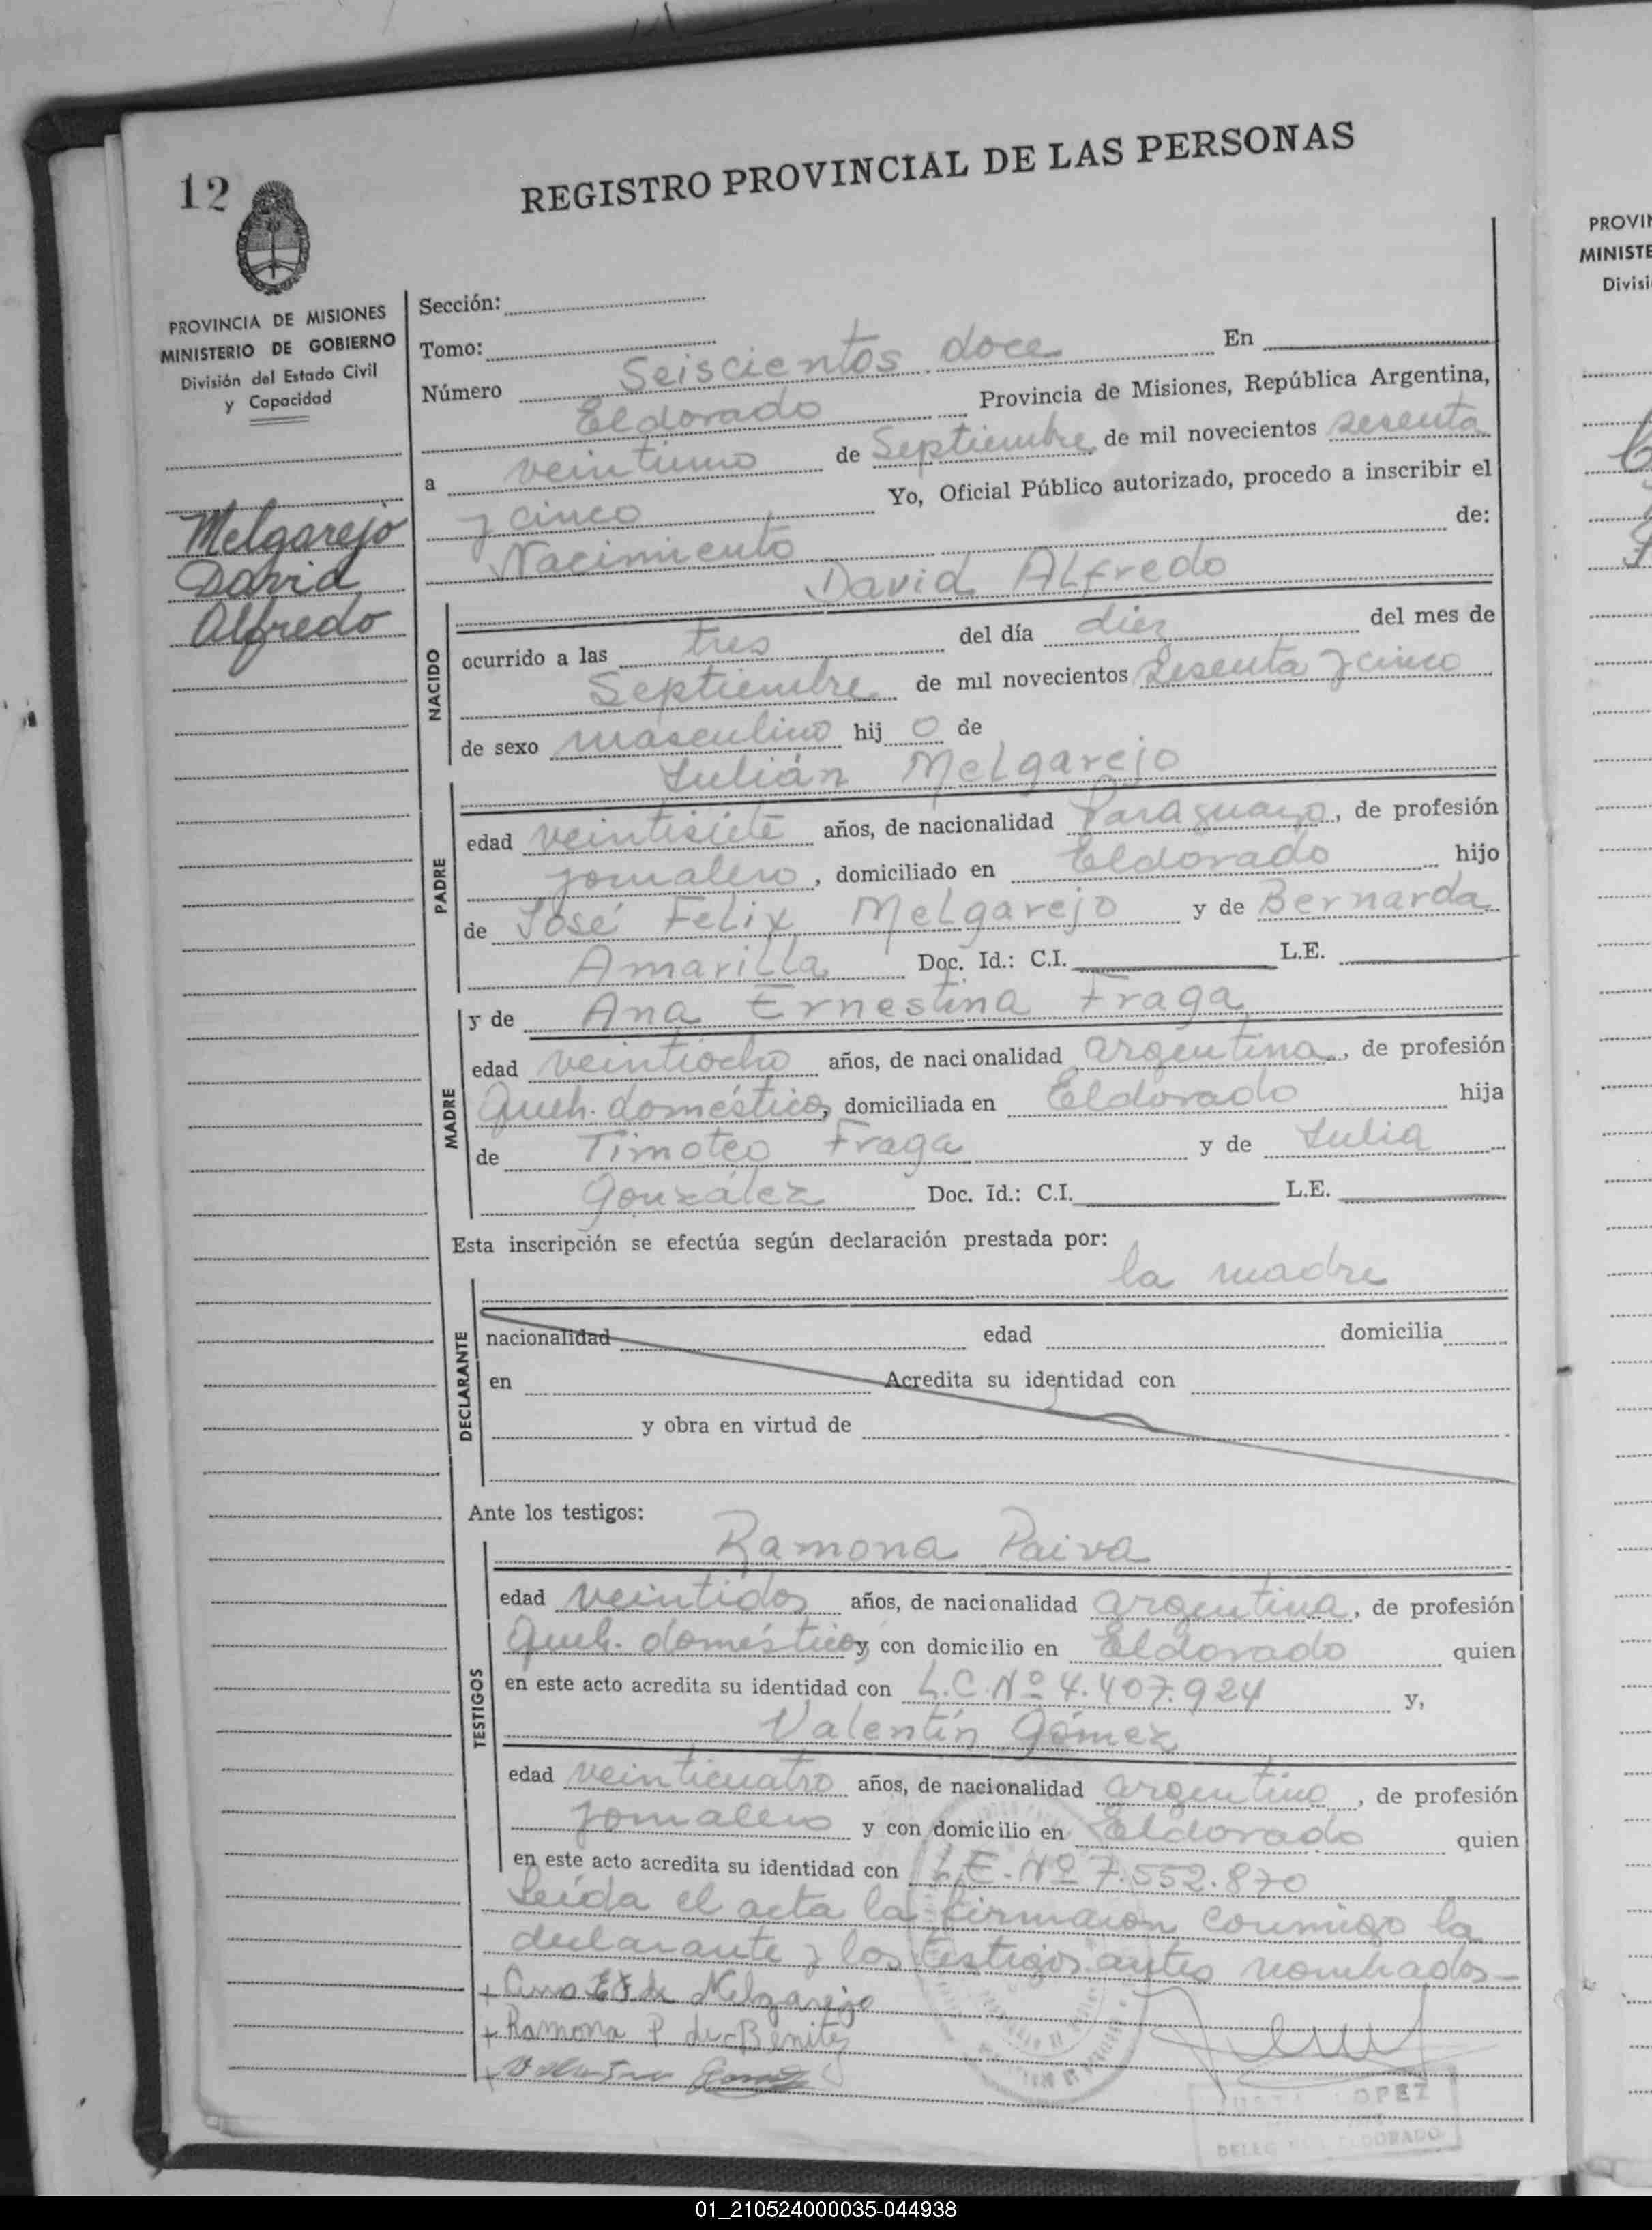 REGISTRO PROVINCIAL DE LAS PERSONAS
12
PROVINCIA DE MISIONES
MINISTERIO DE GOBIERNO
División del Estado Civil
y Capacidad
Melgarejo
David
Alfredo
Sección:
Tomo:
Número Seiscientos doce En
Eldorado Provincia de Misiones, República Argentina,
a veintiuno de Septiembre de mil novecientos sesenta
y cinco Yo, Oficial Público autorizado, procedo a inscribir el
Nacimiento de:
David Alfredo
NACIDO
ocurrido a las tres del día diez del mes de
Septiembre de mil novecientos sesenta y cinco
de sexo masculino hij o de
Julián Melgarejo
PADRE
edad veintisiete años, de nacionalidad Paraguayo, de profesión
jornalero, domiciliado en Eldorado hijo
de José Felix Melgarejo y de Bernarda
Amarilla Doc. Id.: C.I. L.E.
MADRE
y de Ana Ernestina Fraga
edad veintiocho años, de naci onalidad argentina, de profesión
Queh. domésticos, domiciliada en Eldorado hija
de Timoteo Fraga y de Julia
González Doc. Id.: C.I. L.E.
Esta inscripción se efectúa según declaración prestada por:
la madre
DECLARANTE
nacionalidad edad domicilia
en Acredita su identidad con
y obra en virtud de
Ante los testigos:
Ramona Paiva
TESTIGOS
edad veintidos años, de nacionalidad argentina, de profesión
Queh. domésticos y con domicilio en Eldorado quien
en este acto acredita su identidad con L.C. Nº 4.407.924 y,
Valentín Gómez
edad veinticuatro años, de nacionalidad argentino, de profesión
jornalero y con domicilio en Eldorado quien
en este acto acredita su identidad con L.E. Nº 7.552.870
Leída el acta la firmaron conmigo la
declarante y los testigos antes nombrados-
+ Ana E F de Melgarejo
+ Ramona P de Benitez
+ Valentin Gomez
LOPEZ
ELDORADO
PROVIN
MINISTE
Divisi
01_210524000035-044938